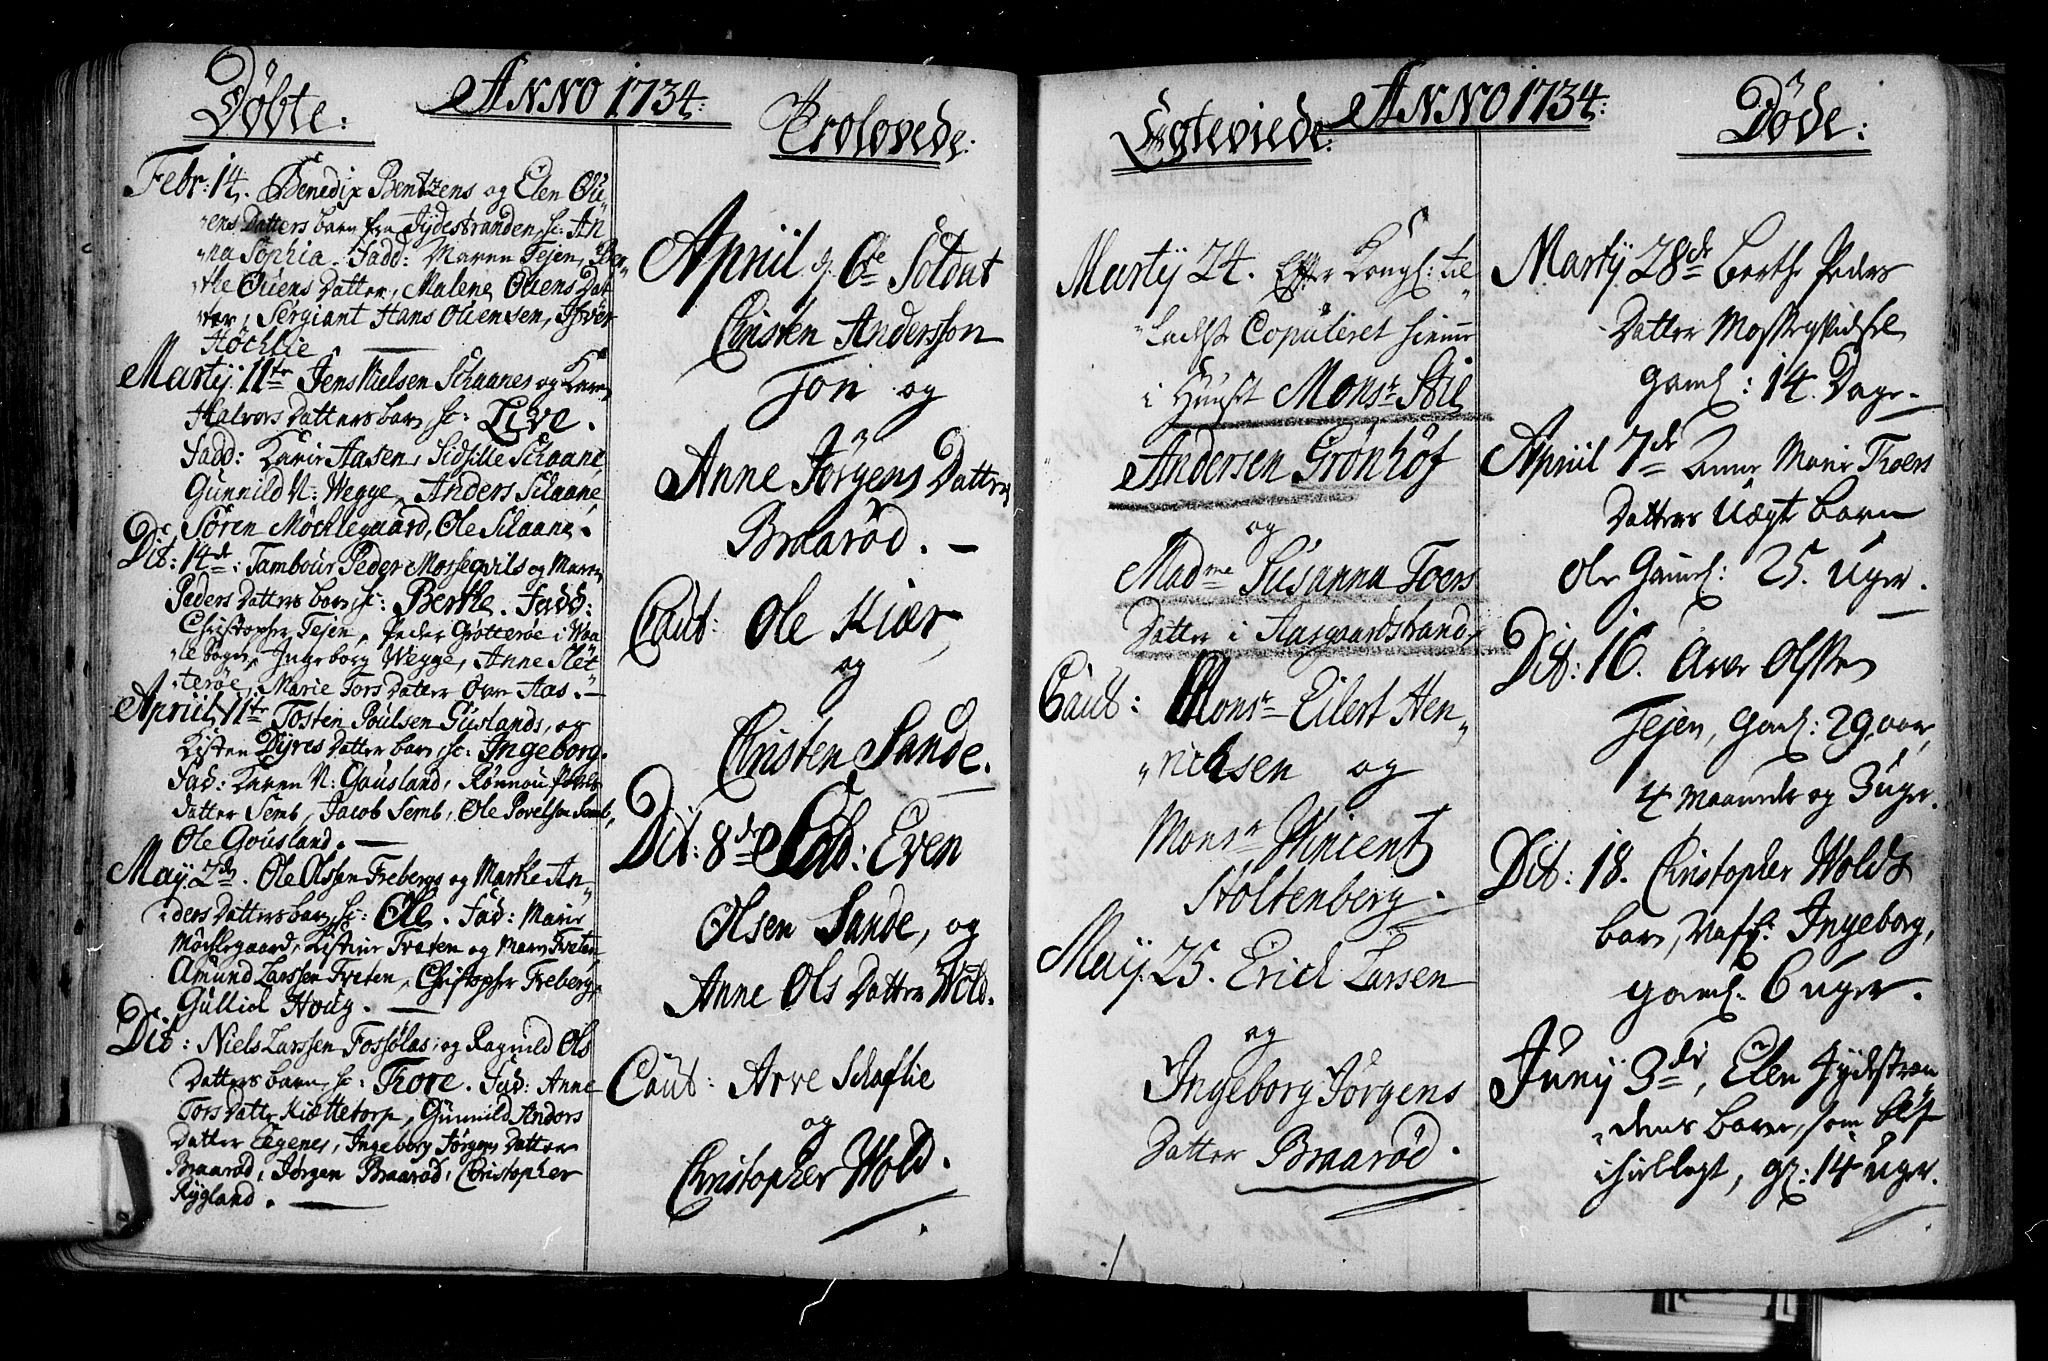 Døbte:
ANNO 1734:
Febr: 14. Benedix Bentzens og Elen Ou¬
¬ens Datters barn fra Jydestranden, sc: An
¬na Sophia. Fadd: Maren Tejen, Ber¬
¬the Ouens Datter, Malene Ouens Dat
¬ter, Sergiant Hans Ouensen, Iver
Høchlie.
Martij 11te Jens Nielsen Schaanes og Karen
Halvors Datters barn sc: Live.
Fadd: Karie Aasen, Sidsille Schaane
Gunnild N: Wegge, Anders Schaane,
Søren Møchlegaard, Ole Schaane.
Dit: 14de: Tambour Peder Mossequils og Maren
Peders Datters barn, sc: Berthe. Fadd:
Christopher Tejen, Peder Grøtterøe i Waa
¬le Sogn, Ingeborg Wegge, Anne Slet
¬terøe, Marie Tors Datter Øvre Aas.
Apriil 11te Tosten Poulsen Guslands, og
Kisten Dyres Datter barn, sc: Ingeborg.
Fad: Karen N: Gousland, Rønnou Povels
Datter Semb, Jacob Semb, Ole Povelsen Semb,
Ole Gousland.
May 2de. Ole Olssen Frebergs og Marthe An¬
¬ders Datters barn, sc: Ole. Fad: Marie
Møchlegaard, Kistine Freten og Maren Freten
Amund Larssen Freten, Christopher Freberg,
Gullich Houg.
Dit: Niels Larssen Fossølas, og Ragnild Ols
Datters barn, sc: Thore. Fad: Anne
Tors Datter Kiættetorp, Gunnild Andors
Datter Eegenes, Ingeborg Jørgens Datter
Braarød, Jørgen Braarød, Christopher
Rygland.
Trolovede:
Apriil d. 6te Soldat
Christen Andersson
Ton og
Anne Jørgens Datter
Braarød.
Caut: Ole Kiær,
og
Christen Sande.
Dit: 8de Sold: Even
Olsen Sande, og
Anne Ols Datter Wold.
Caut: Arve Schaflie
og
Christopher Wold.
Egteviede:
ANNO 1734:
Martij 24. Efter Kongl: til¬
¬ladelse Copuleret hiemme
i Huuset Monsr Stil
Andersen Grønhof
og
Madme Susanna Toers
Datter i Aasgaardstrand.
Caut: Monsr Eilert Hen¬
¬richsen og
Monsr Wincent
Stoltenberg.
Maij 25. Erich Larsen
og
Ingeborg Jørgens
Datter Braarød.
Døde:
Martij 28de Berthe Peders
Datter
Gaml: 14 Dage.
Apriil 7de Anne Marie Thoers
Datters Uægte barn
Ole Gaml: 25. Uger.
Dit: 16. Arve Olsen
Tejen, Gaml: 29 aar,
4 Maaneder og 3 uger.
Dit: 18. Christopher Wolds
barn, Nafl: Ingeborg,
gaml: 6 uger.
Junij 3de, Elen Jydestran
¬dens barn, som blef
ihiellagt, gl: 14 uger.